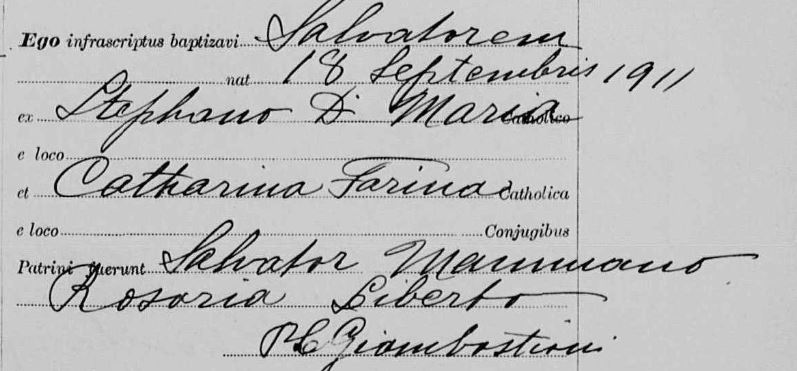 Ego infrascriptus baptizavi Salvatorem
nat 18 Septembris 1911
ex Stephano Di Maria Catholico
e loco
et Catharina Farina Catholica
e loco Conjugibus
Patrini fuerunt Salvator
Rosaria Liberto